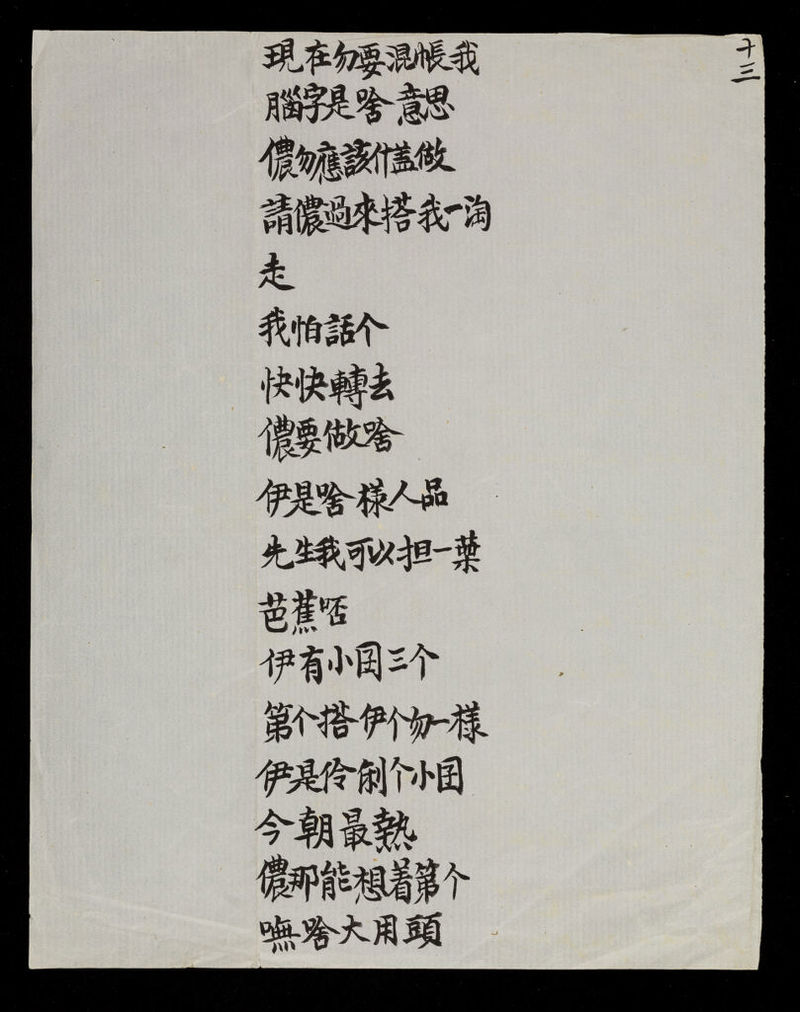 十三
現在勿要混帳我
腦字是啥意思
儂勿應該什蓋做
請儂過來搭我一淘
走
我怕話个
快快轉去
儂要做啥
伊是啥樣人品
先生我可以担一葉
芭蕉呸
伊有小囝三个
第个搭伊个勿一樣
伊是伶俐个小囝
今朝最熱
儂那能想着第个
嘸啥大用頭